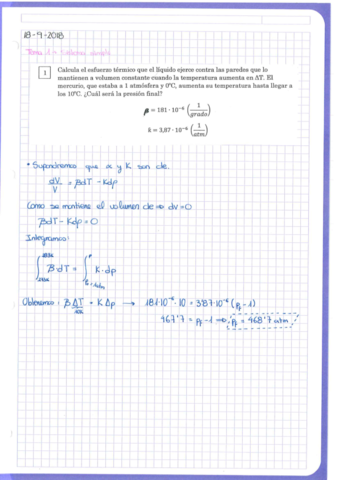 18-9-2018
Tema 1 - Sistemas simples
1 Calcula el esfuerzo térmico que el líquido ejerce contra las paredes que lo
mantienen a volumen constante cuando la temperatura aumenta en ΔT. El
mercurio, que estaba a 1 atmósfera y 0ºC, aumenta su temperatura hasta llegar a
los 10ºC. ¿Cuál será la presión final?
β = 181 · 10⁻⁶ (1/grado)
k = 3,87 · 10⁻⁶ (1/atm)
• Supondremos que α y K son cte.
dV/V = βdT - Kdp
Como se mantiene el volumen cte ⇒ dV = 0
βdT - Kdp = 0
Integramos:
∫ β·dT = ∫ K·dp
Obtenemos: β ΔT = K Δp → 181·10⁻⁶ · 10 = 3'87·10⁻⁶ (Pf - 1)
467'7 = Pf - 1 ⇒ Pf = 468'7 atm